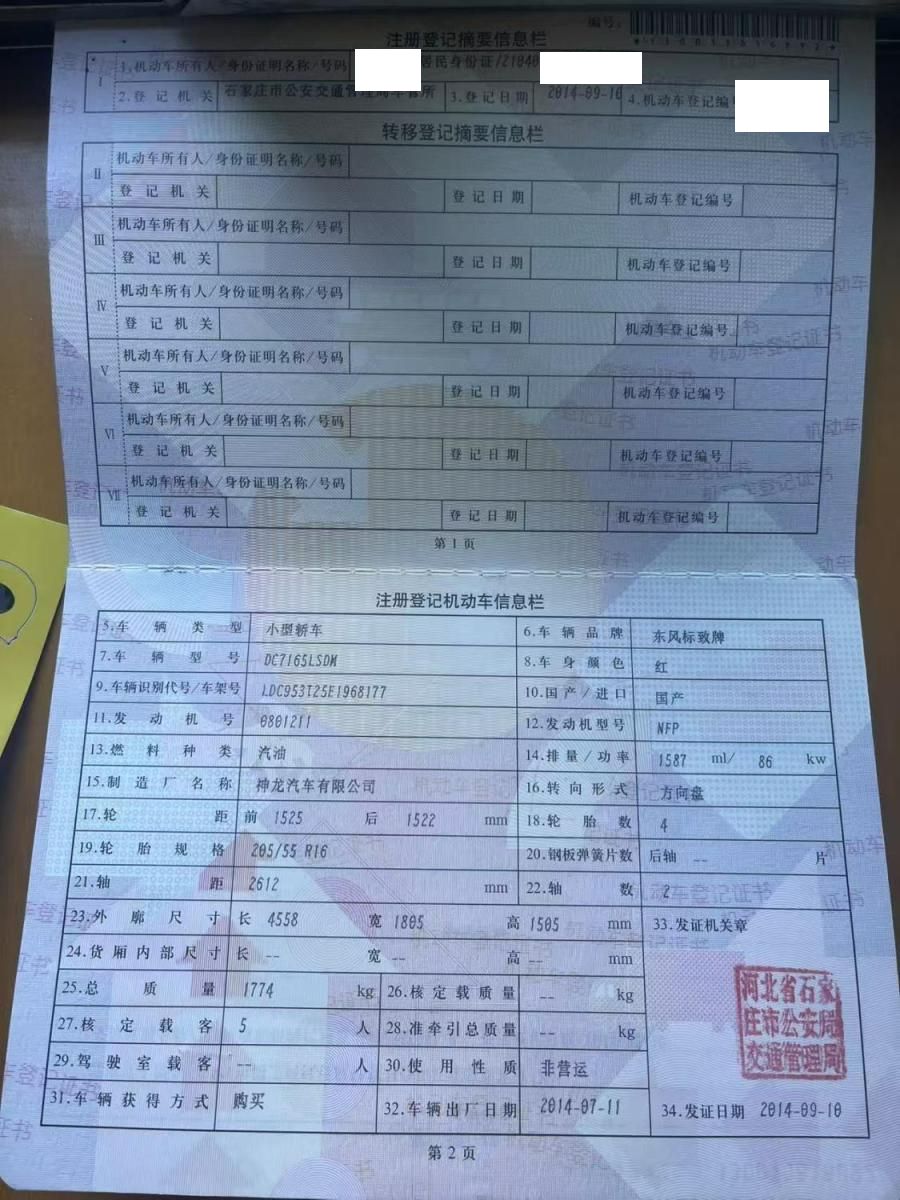 编号:
*130013616992*
注册登记摘要信息栏
I 1.机动车所有人/身份证明名称/号码 居民身份证/21040
2.登记机关 石家庄市公安交通管理局车管所 3.登记日期 2014-09-10 4.机动车登记编号
转移登记摘要信息栏
II 机动车所有人/身份证明名称/号码
登记机关 登记日期 机动车登记编号
III 机动车所有人/身份证明名称/号码
登记机关 登记日期 机动车登记编号
IV 机动车所有人/身份证明名称/号码
登记机关 登记日期 机动车登记编号
V 机动车所有人/身份证明名称/号码
登记机关 登记日期 机动车登记编号
VI 机动车所有人/身份证明名称/号码
登记机关 登记日期 机动车登记编号
VII 机动车所有人/身份证明名称/号码
登记机关 登记日期 机动车登记编号
第1页
注册登记机动车信息栏
5.车辆类型 小型轿车 6.车辆品牌 东风标致牌
7.车辆型号 DC7165LSDM 8.车身颜色 红
9.车辆识别代号/车架号 LDC953T25E1968177 10.国产/进口 国产
11.发动机号 0801211 12.发动机型号 NFP
13.燃料种类 汽油 14.排量/功率 1587 ml/ 86 kw
15.制造厂名称 神龙汽车有限公司 16.转向形式 方向盘
17.轮距 前 1525 后 1522 mm 18.轮胎数 4
19.轮胎规格 205/55 R16 20.钢板弹簧片数 后轴 -- 片
21.轴距 2612 mm 22.轴数 2
23.外廓尺寸 长 4558 宽 1805 高 1505 mm 33.发证机关章
24.货厢内部尺寸 长 -- 宽 -- 高 -- mm
25.总质量 1774 kg 26.核定载质量 -- kg
27.核定载客 5 人 28.准牵引总质量 -- kg
29.驾驶室载客 -- 人 30.使用性质 非营运
河北省石家
庄市公安局
交通管理局
31.车辆获得方式 购买 32.车辆出厂日期 2014-07-11 34.发证日期 2014-09-10
第2页